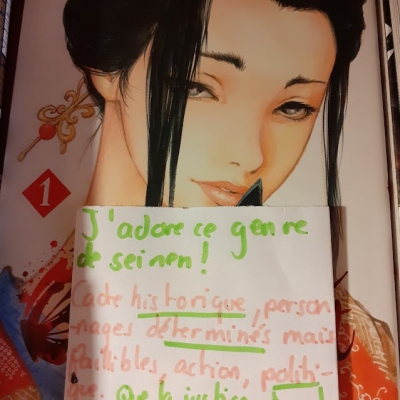 1
J'adore ce genre
de seinen!
Cadre historique, person
-nages déterminés mais
faillibles, action, politi-
que. Que la justice